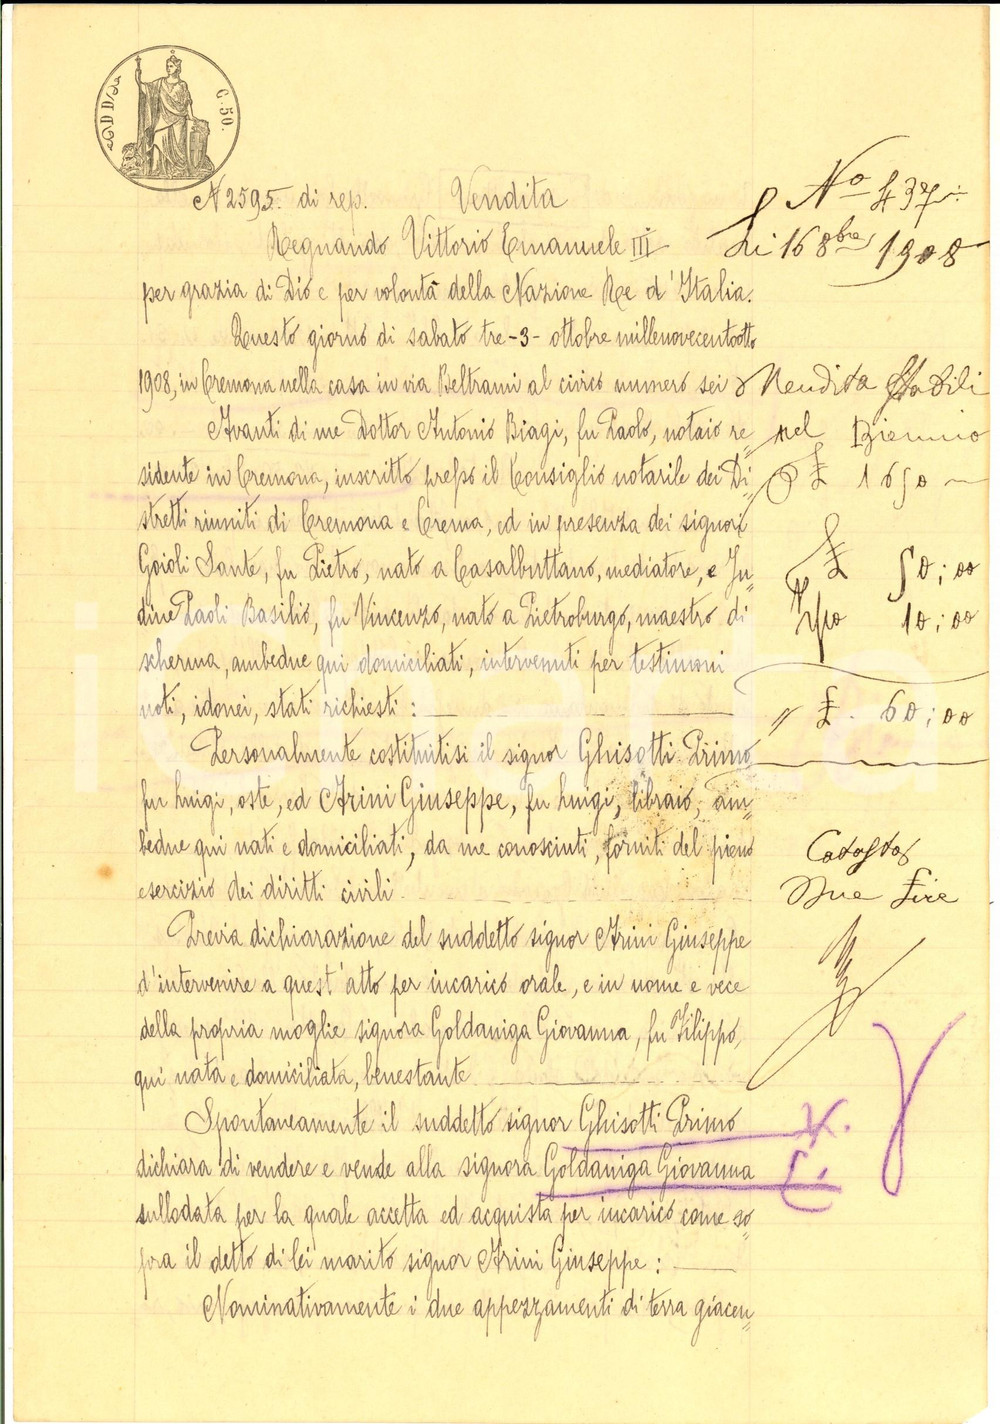 C. 50.
N 2595. di rep. Vendita
Regnando Vittorio Emanuele III
per grazia di Dio e per volontà della Nazione Re d'Italia.
Questo giorno di sabato tre-3- ottobre millenovecentootto
1908, in Cremona nella casa in via Beltrami al civico numero sei
Avanti di me Dottor Antonio Biagi, fu Paolo, notaio re=
sidente in Cremona, inscritto presso il Consiglio notarile dei Di=
stretti riuniti di Cremona e Crema, ed in presenza dei signori
Goioli Sante, fu Pietro, nato a Casalbuttano, mediatore, e Ju=
dine Paoli Basilio, fu Vincenzo, nato a Pietroburgo, maestro di
scherma, ambedue qui domiciliati, intervenuti per testimoni
noti, idonei, stati richiesti :
Personalmente costituitisi il signor Ghisotti Primo
fu Luigi, oste, ed Arini Giuseppe, fu Luigi, libraio, am=
bedue qui nati e domiciliati, da me conosciuti, forniti del pieno
esercizio dei diritti civili.
Previa dichiarazione del suddetto signor Arini Giuseppe
d'intervenire a quest'atto per incarico orale, e in nome e vece
della propria moglie signora Goldaniga Giovanna, fu Filippo,
qui nata e domiciliata, benestante
Spontaneamente il suddetto signor Ghisotti Primo
dichiara di vendere e vende alla signora Goldaniga Giovanna
sullodata per la quale accetta ed acquista per incarico come so=
pra il detto di lei marito signor Arini Giuseppe :
Nominativamente i due appezzamenti di terra giacen=
No 437
Li 16 8bre 1908
Vendita Stabili
nel Biennio
£ 1650
£ 50,00
10,00
£. 60,00
Catasto
Due Lire